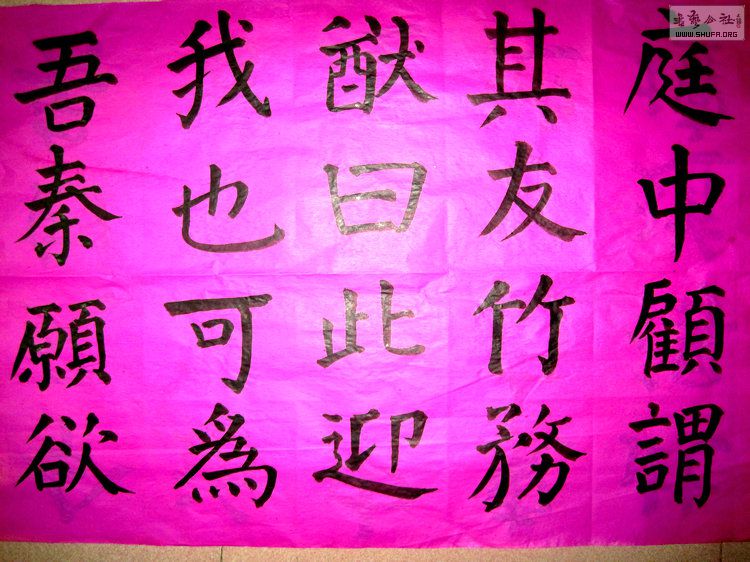 庭中顧謂
其友竹務
猷曰此迎
我也可為
吾秦願欲
書艺公社
WWW.SHUFA.ORG